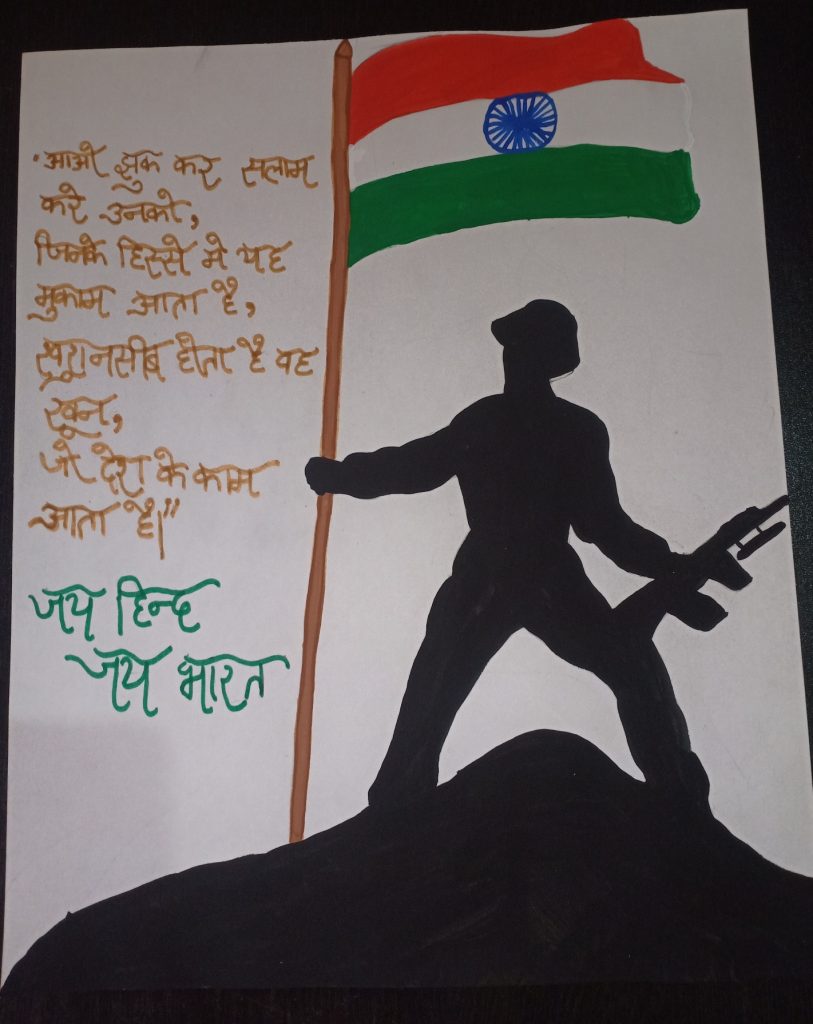 "आओ झुक कर सलाम
करे उनको,
जिनके हिस्से मे यह
मुकाम आता है,
खुशनसीब होता है वह
खून,
जो देश के काम
आता है।"
जय हिन्द
जय भारत